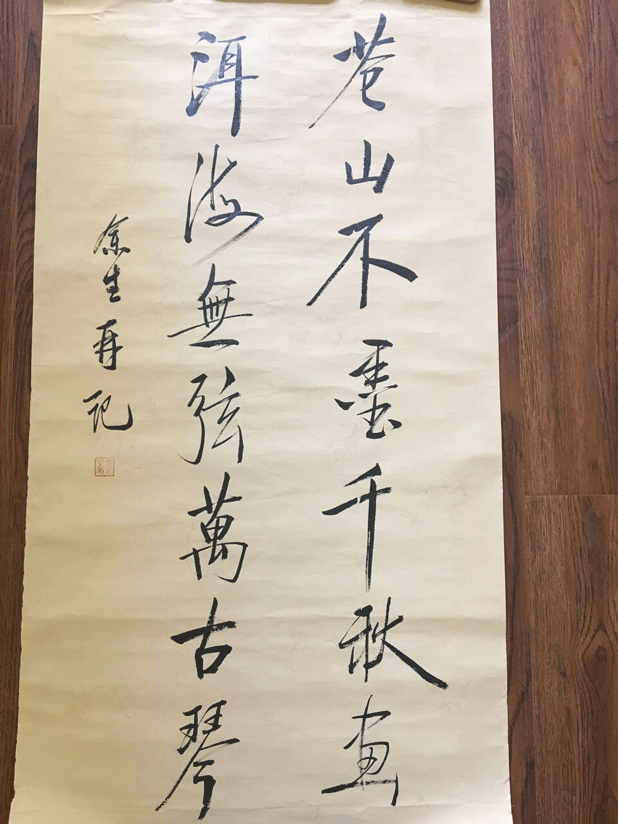 苍山不墨千秋画
洱海無弦萬古琴
余生再记